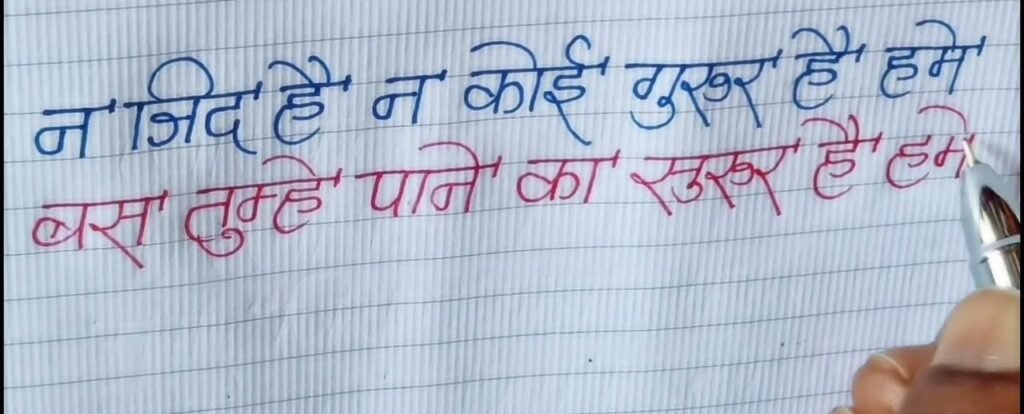 न जिद है न कोई गुरुर है हमे
बस तुम्हे पाने का सुरुर है हमे